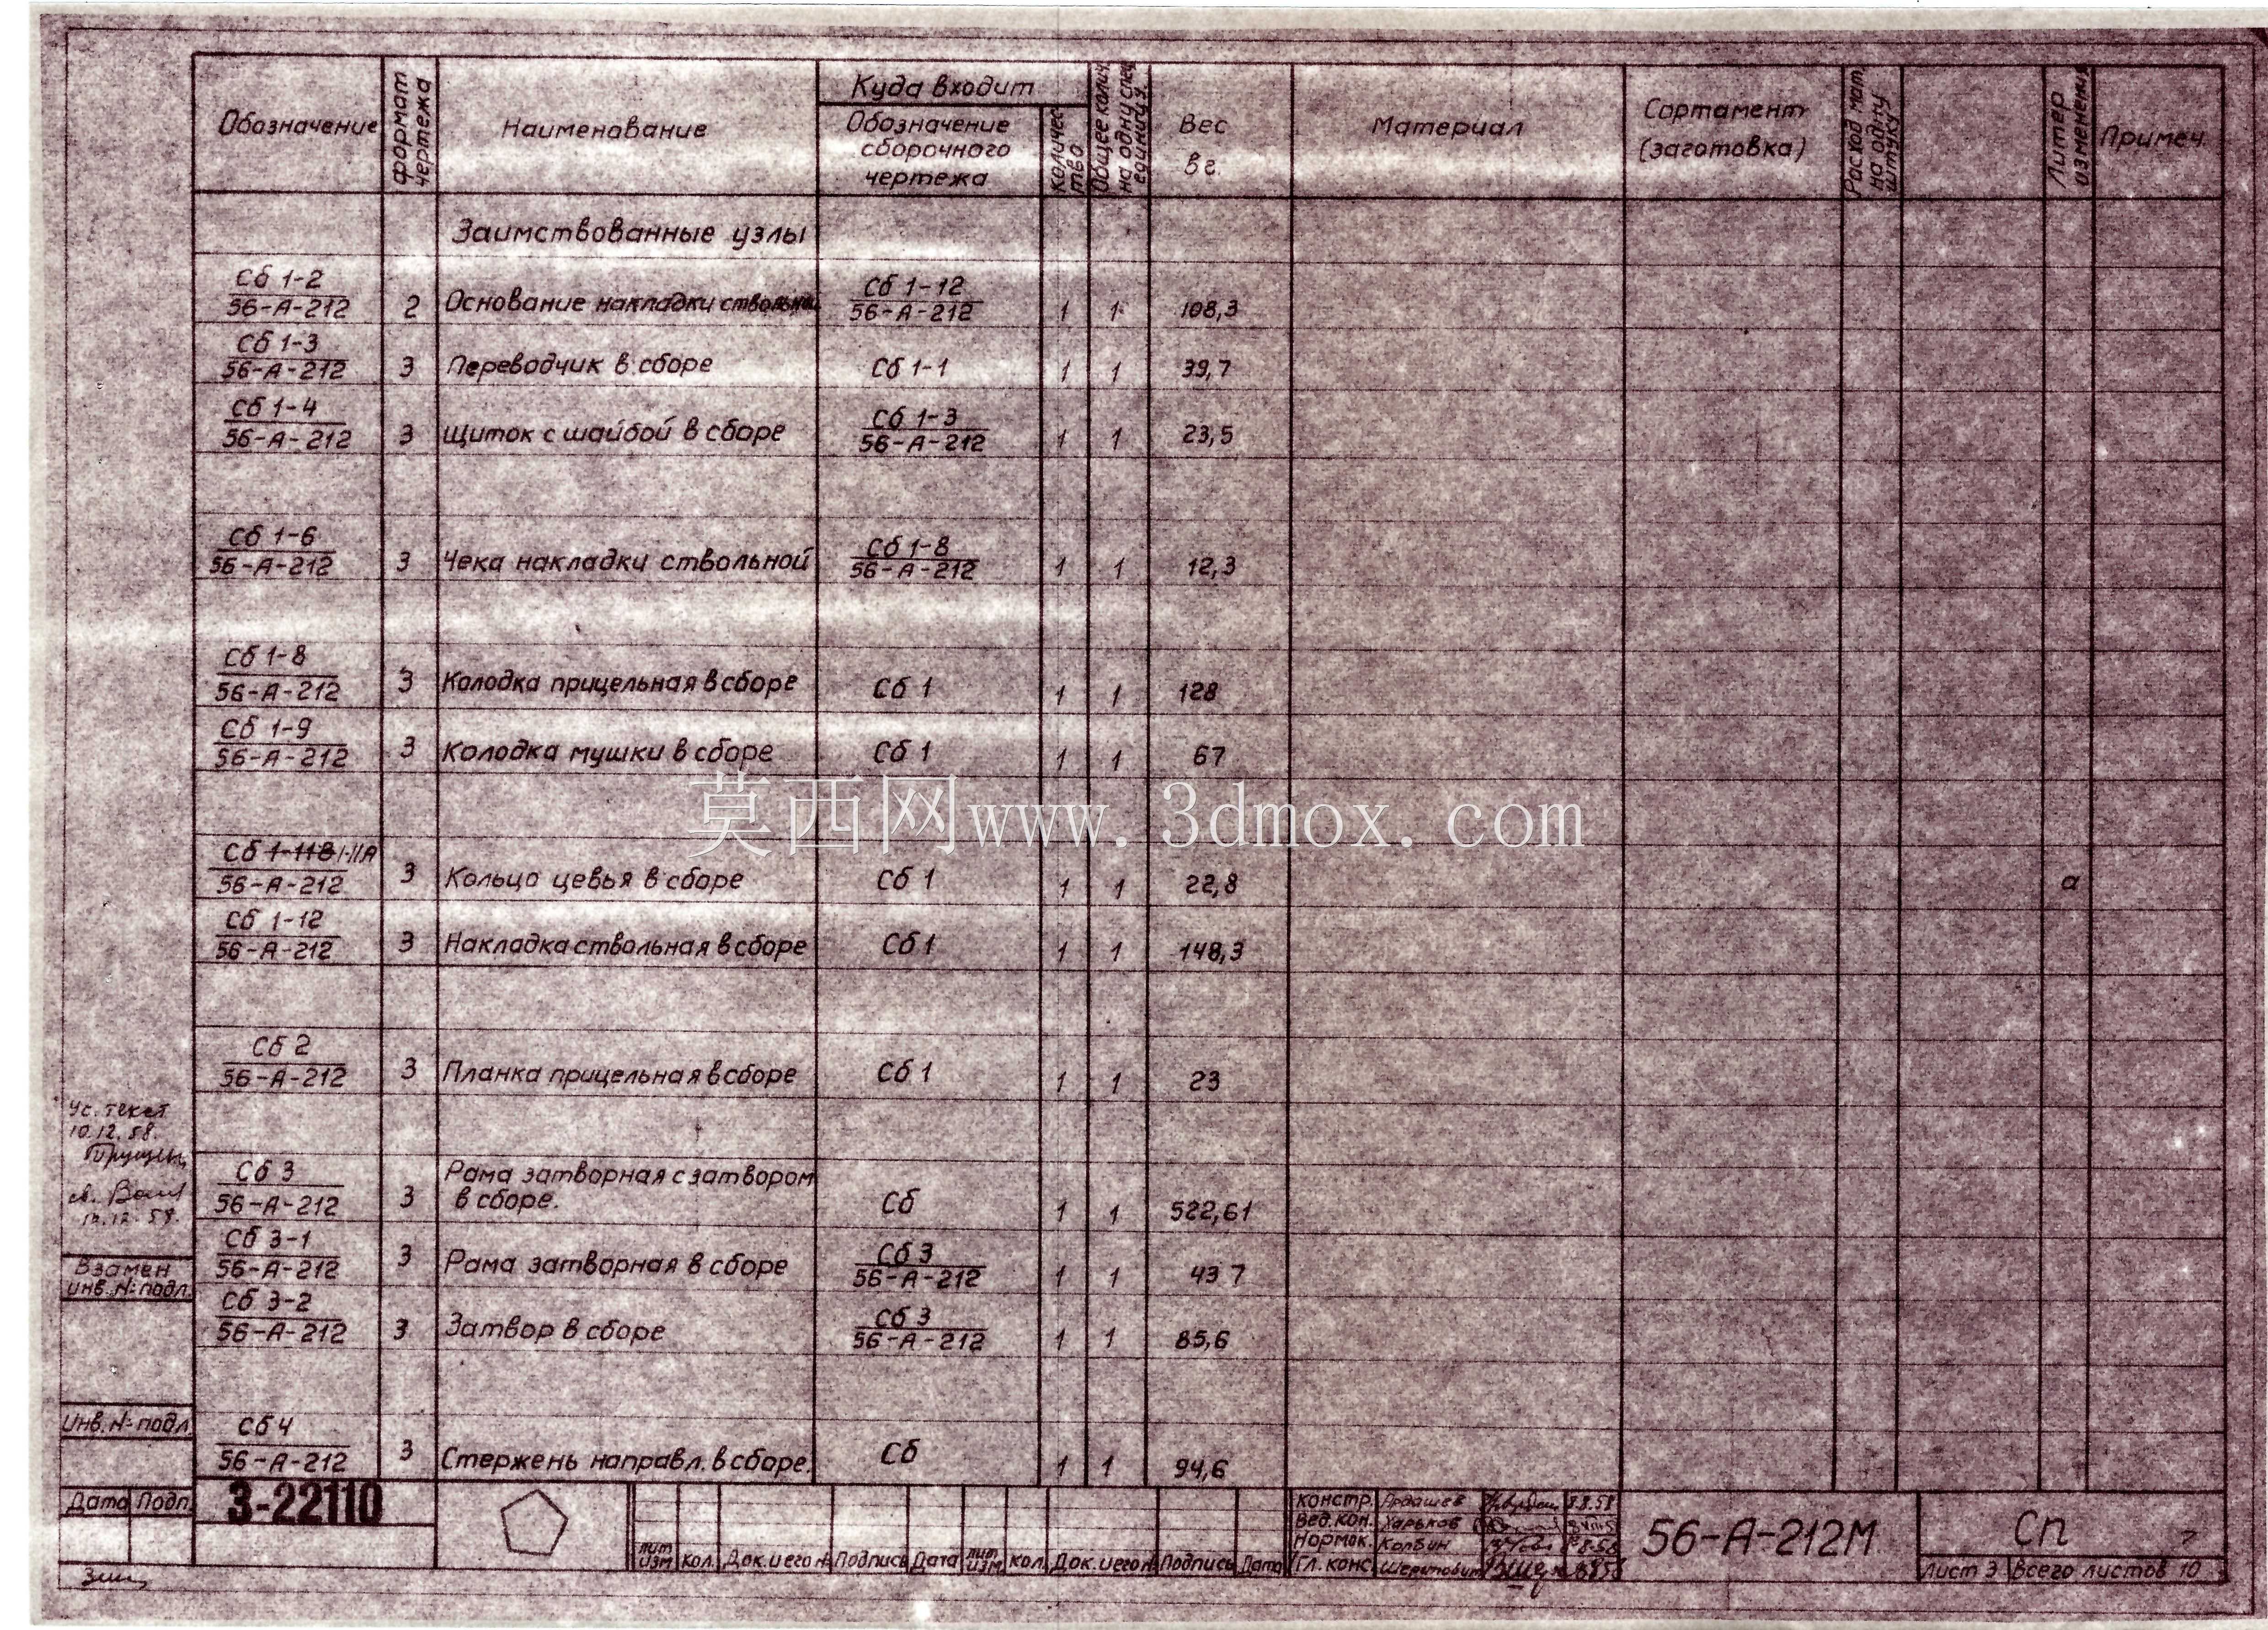 Обозначение
формат чертежа
Наименование
Куда входит
Обозначение
сборочного
чертежа
количес
тво
Общее колич.
на одну спец.
единицу.
Вес
в г.
Материал
Сортамент
(заготовка)
Расход мат.
на одну
штуку
Литер
изменения
Примеч.
Заимствованные узлы
Сб 1-2
56-А-212 2 Основание накладки ствольной Сб 1-12
56-А-212 1 1 108,3
Сб 1-3
56-А-212 3 Переводчик в сборе Сб 1-1 1 1 39,7
Сб 1-4
56-А-212 3 Щиток с шайбой в сборе Сб 1-3
56-А-212 1 1 23,5
Сб 1-6
56-А-212 3 Чека накладки ствольной Сб 1-8
56-А-212 1 1 12,3
Сб 1-8
56-А-212 3 Колодка прицельная в сборе Сб 1 1 1 128
Сб 1-9
56-А-212 3 Колодка мушки в сборе Сб 1 1 1 67
莫西网www.3dmox.com
Сб 1-11В 1-11А
56-А-212 3 Кольцо цевья в сборе Сб 1 1 1 22,8 а
Сб 1-12
56-А-212 3 Накладка ствольная в сборе Сб 1 1 1 148,3
Сб 2
56-А-212 3 Планка прицельная в сборе Сб 1 1 1 23
Ус. текст
10.12.58.
Сб 3
56-А-212 3 Рама затворная с затвором
в сборе. Сб 1 1 522,61
Сб 3-1
56-А-212 3 Рама затворная в сборе Сб 3
56-А-212 1 1 43 7
Сб 3-2
56-А-212 3 Затвор в сборе Сб 3
56-А-212 1 1 85,6
Сб 4
56-А-212 3 Стержень направл. в сборе. Сб 1 1 94,6
Взамен
инв. №подл.
Инв. №подл
Дата Подп.
3-22110
лит
изм Кол. Док. и его № Подпись Дата лит
изм кол. Док. и его № Подпись Дата
констр. Ардашев 8.8.58
Вед. кон. Харьков
Нормок. Колбин
Гл. конс.
56-А-212М
Сп
Лист 3 Всего листов 10